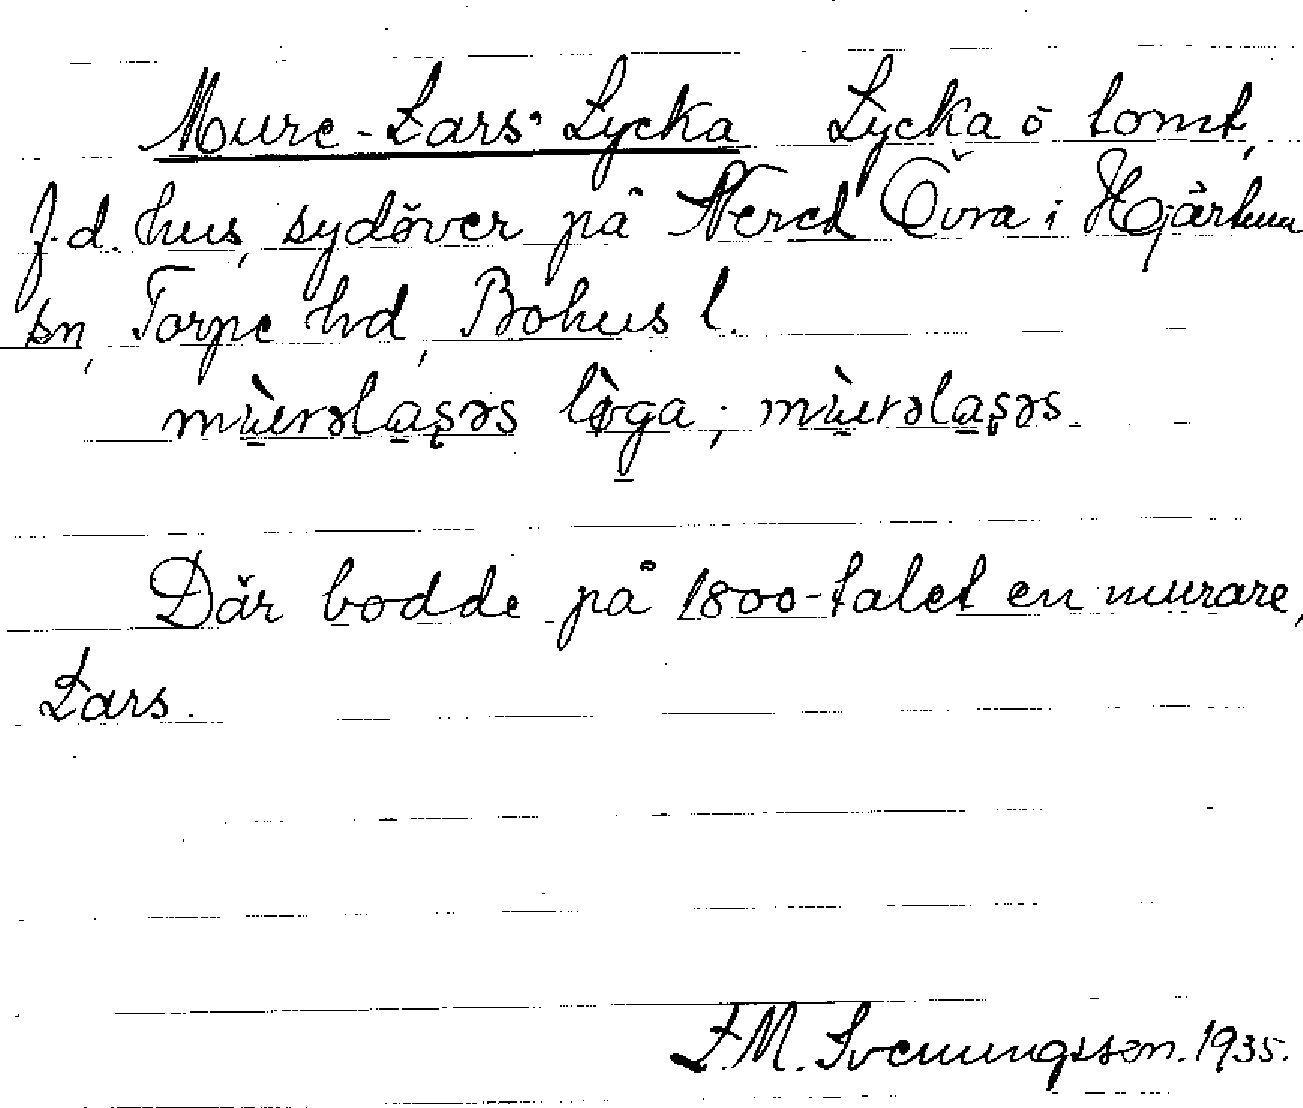 Mure-Lars' Lycka Lycka o tomt,
f.d. hus, sydöver på Nered Övra i Hjärtum
sn, Torpe hd, Bohus l.
mùrəlaṣəs lø̀ga; mùrəlaṣəs.
Där bodde på 1800-talet en murare,
Lars.
L.M. Svenungsson. 1935.